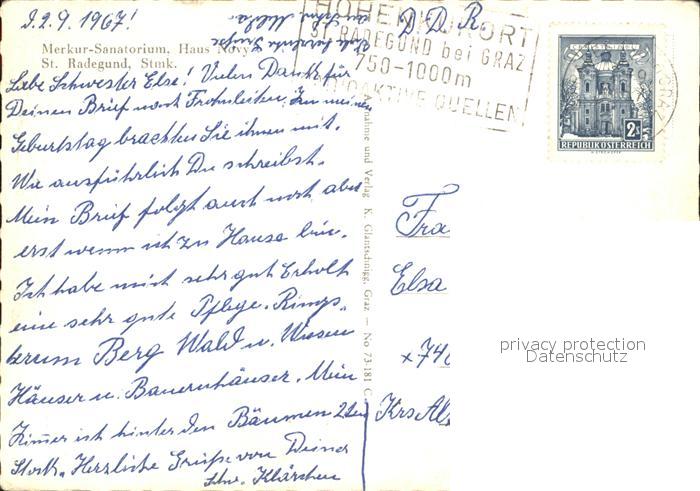 d. 2. 9. 1967!
Merkur-Sanatorium, Haus Novy
St. Radegund, Stmk.
Liebe Schwester Else! Vielen Dank für
Deinen Brief nach Frohnleiten, Zu meinem
Geburtstag brachten Sie ihnen mit.
Wie ausführlich Du schreibst.
Mein Brief folgt auch noch aber
erst wenn ich zu Hause bin.
Ich habe mich sehr gut Erholt
eine sehr gute Pflege. Rings-
herum Berg Wald u. Wiesen
Häuser u. Bauernhäuser. Mein
Zimmer ist hinter den Bäumen 2ten
Stock. Herzliche Grüße von Deiner
Schw. Klärchen
und Verlag K. Glantschnigg, Graz — No 73-181 C
HÖHENKURORT
ST. RADEGUND bei GRAZ
750-1000m
RADIOAKTIVE QUELLEN
GRAZ
CHRISTKINDL
2S
REPUBLIK ÖSTERREICH
D D R
Fra
Elsa
x 74
Krs Al
privacy protection
Datenschutz